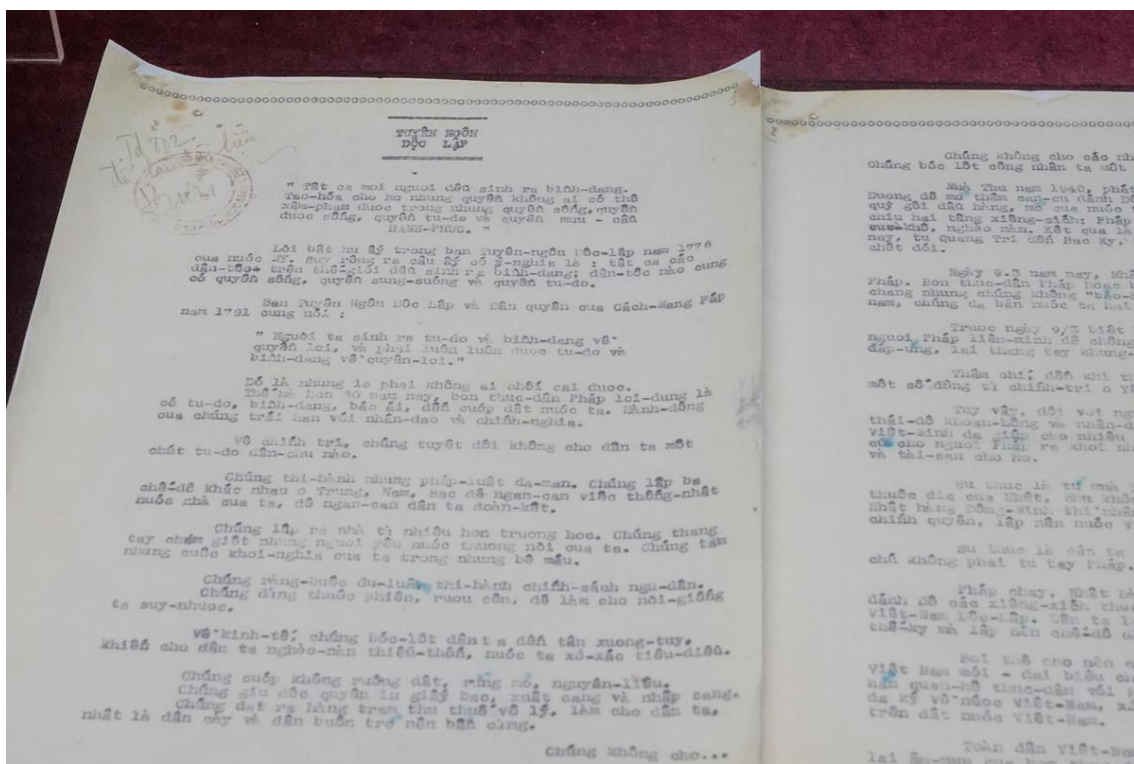 TUYÊN NGÔN
DỘC LẬP
" Tất ca mọi nguoi dêu sinh ra bình-dang.
Tao-hóa cho ho nhung quyền không ai có thể
xâm-phạm duoc trong nhung quyền sống, quyền
duoc sống, quyền tu-do và quyền mưu - cầu
HANH-PHUC. "
Lòi bât hu ấy trong ban Tuyên-ngôn Dôc-lập năm 1776
cua nuóc Mỹ. Suy rông ra câu ấy có ý-nghia là : tất ca các
dân-tôc trên thế-giói dêu sinh ra bình-dang; dân-tôc nào cung
có quyền sống, quyền sung-suóng và quyền tu-do.
Ban Tuyên Ngôn Dôc Lập và Dân quyền cua Cách-Mang Páp
nam 1791 cung nói :
" Nguòi ta sinh ra tu-do và bình-dang về
quyền loi, và phai luôn luôn duoc tu-do và
bình-dang về quyền-loi."
Dó là nhung lẽ phai không ai chối cai duoc.
Thế mà hon 80 nam nay, bon thuc-dân Pháp loi-dung lá
cò tu-do, bình-dang, bác ái, dến cuóp dât nuóc ta. Hành-dông
cua chúng trái han vói nhân-dao và chính-nghia.
Về chính trị, chúng tuyệt dôi không cho dân ta môt
chút tu-do dân-chu nào.
Chúng thi-hành nhung pháp-luât da-man. Chúng lập ba
chế-dô khác nhau o Trung, Nam, Bac dê ngan-can viêc thống-nhât
nuóc nhà cua ta, dê ngan-can dân ta doàn-kết.
Chúng lập ra nhà tù nhiều hon truong hoc. Chúng thang
tay chém giết nhung nguoi yêu nuóc thuong nòi cua ta. Chúng tám
nhung cuôc khoi-nghia cua ta trong nhung bê máu.
Chúng ràng-buôc du-luân thi-hành chính-sách ngu-dân.
Chúng dùng thuôc phiên, ruou côn, dê làm cho nòi-giống
ta suy-nhuoc.
Về kinh-tế, chúng bóc-lôt dân ta dến tân xuong-tuy,
khiến cho dân ta nghèo-nàn thiếu-thốn, nuóc ta xó-xác tiêu-diều.
Chúng cuóp không ruông dât, rừng mỏ, nguyên-liêu.
Chúng giu dôc quyền in giấy bac, xuất cang và nhập cang.
Chúng dat ra hàng tram thu thuế vô lý, làm cho dân ta,
nhât là dân cày và dân buôn tro nên bần cùng.
Chúng không cho...
Chúng không cho các nh
Chúng bóc lôt công nhân ta môt
Mùa Thu nam 1940, phát
Duong dê mo thêm can-cu dánh
quỳ gối dầu hàng, mo cua nuóc
chiu hai tâng xiềng-xích: Pháp
cuc-khô, nghèo nàn. Kết qua là
nay, tu Quang Tri dến Bac Ky,
chết dói.
Ngày 9-3 nam nay, Nhâ
Pháp. Bon thuc-dân Pháp hoac
chang nhung chúng không "bao-h
nam, chúng da bán nuóc ta hai
Truoc ngày 9/3 biết
nguoi Pháp liên-minh dê chống
dáp-ung, lai thang tay khung-
Thâm chí, dến khi th
môt số dông tù chính-tri o Yê
Tuy vây, dối voi ng
thái-dô khoan-hồng và nhân-d
Viêt-minh da giúp cho nhiều
cuu cho nguoi Pháp ra khoi nh
và tài-san cho ho.
Su thuc là từ mùa
thuôc dia cua Nhât, chu khôn
Nhât hàng Dông-minh thì nhân
chính quyền, lập nên nuóc V
Su thuc là dân ta
chú không phai tu tay Pháp.
Pháp chay, Nhât hà
dánh dô các xiềng-xích thuc
Viêt-Nam Dôc-Lâp. Dân ta l
thế-ky mà lập nên chế-dô d
Boi thế cho nên
Viêt Nam mói - dai biểu ch
hẳn quan-hê thuc-dân vói
da ký về nuóc Viêt-Nam, xó
trên dât nuóc Viêt-Nam.
Toàn dân Viêt-Nam
lai âm-mưu cua bon thuc